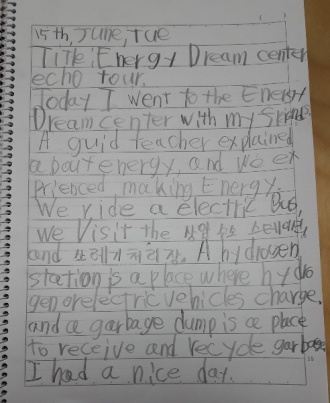 15th, June, Tue
Title: Energy Dream center
echo tour.
Today I went to the Energy
Dream center with my friend.
A guid teacher explained
abaut energy, and we ex
prienced making Energy.
We ride a electric Bus,
we Visit the 상암 수소 스테이션,
and 쓰레기 처리 장. A hydrogen
station is a place where hydro
gen or electric vehicles charge.
and a garbage dump is a place
to receive and recycle garbage.
I had a nice day.